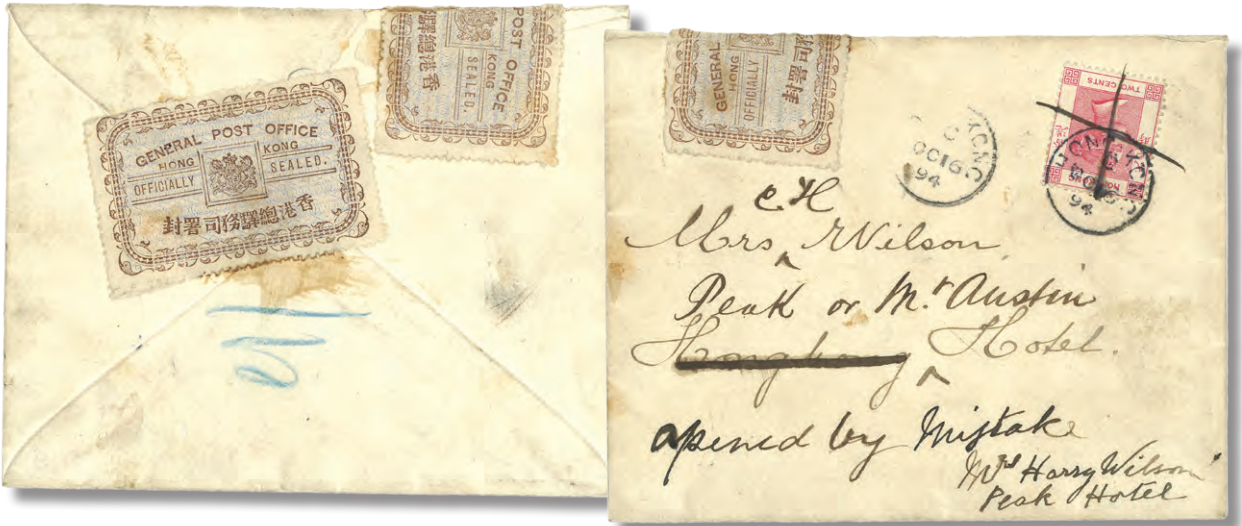 GENERAL POST OFFICE
HONG KONG
OFFICIALLY SEALED.
香港總驛務司署封
POST OFFICE
KONG
SEALED.
香港總驛
GENERAL
HONG
OFFICIALLY
務司署封
KONG
C
OC 16
94
TWO CENTS
HONG KONG
OC 16
94
C H
Mrs ‸ Wilson
Peak or Mt Austin
Hongkong ‸ Hotel.
opened by Mistake
Mrs Harry Wilson
Peak Hotel